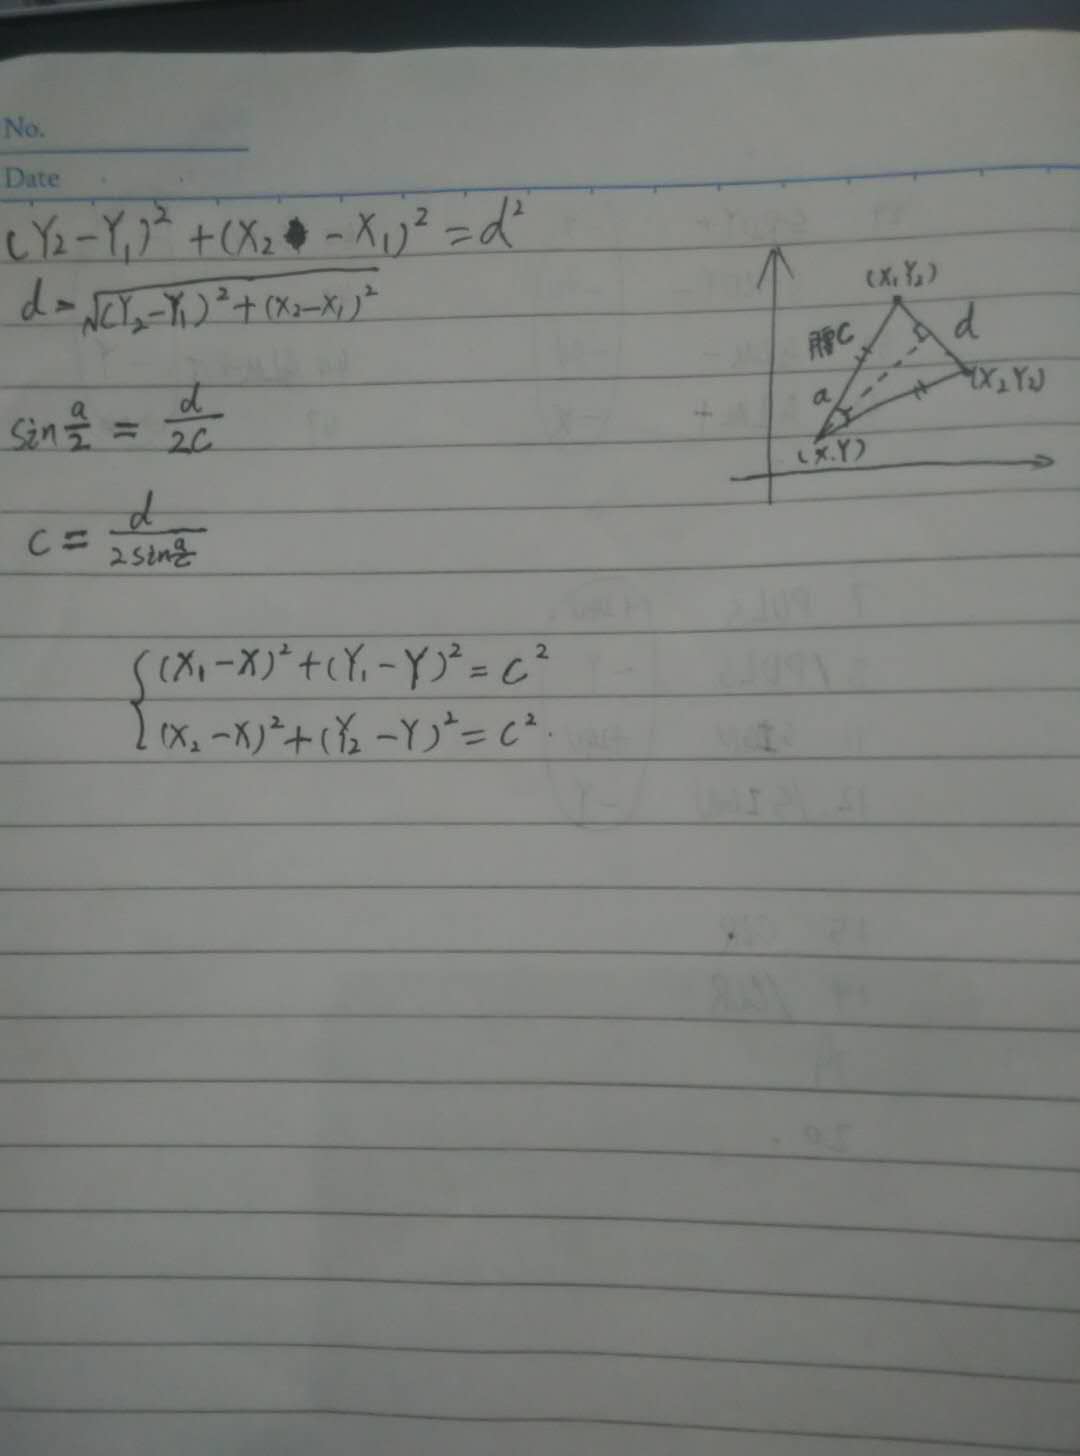 No.
Date
(Y₂-Y₁)²+(X₂-X₁)²=d²
d=√(Y₂-Y₁)²+(X₂-X₁)²
sin a/2 = d/2C
C = d/2sin a/2
{(X₁-X)²+(Y₁-Y)²=C²
(X₂-X)²+(Y₂-Y)²=C².
(X₁Y₂)
腰C
d
a
(X₂Y₂)
(X.Y)